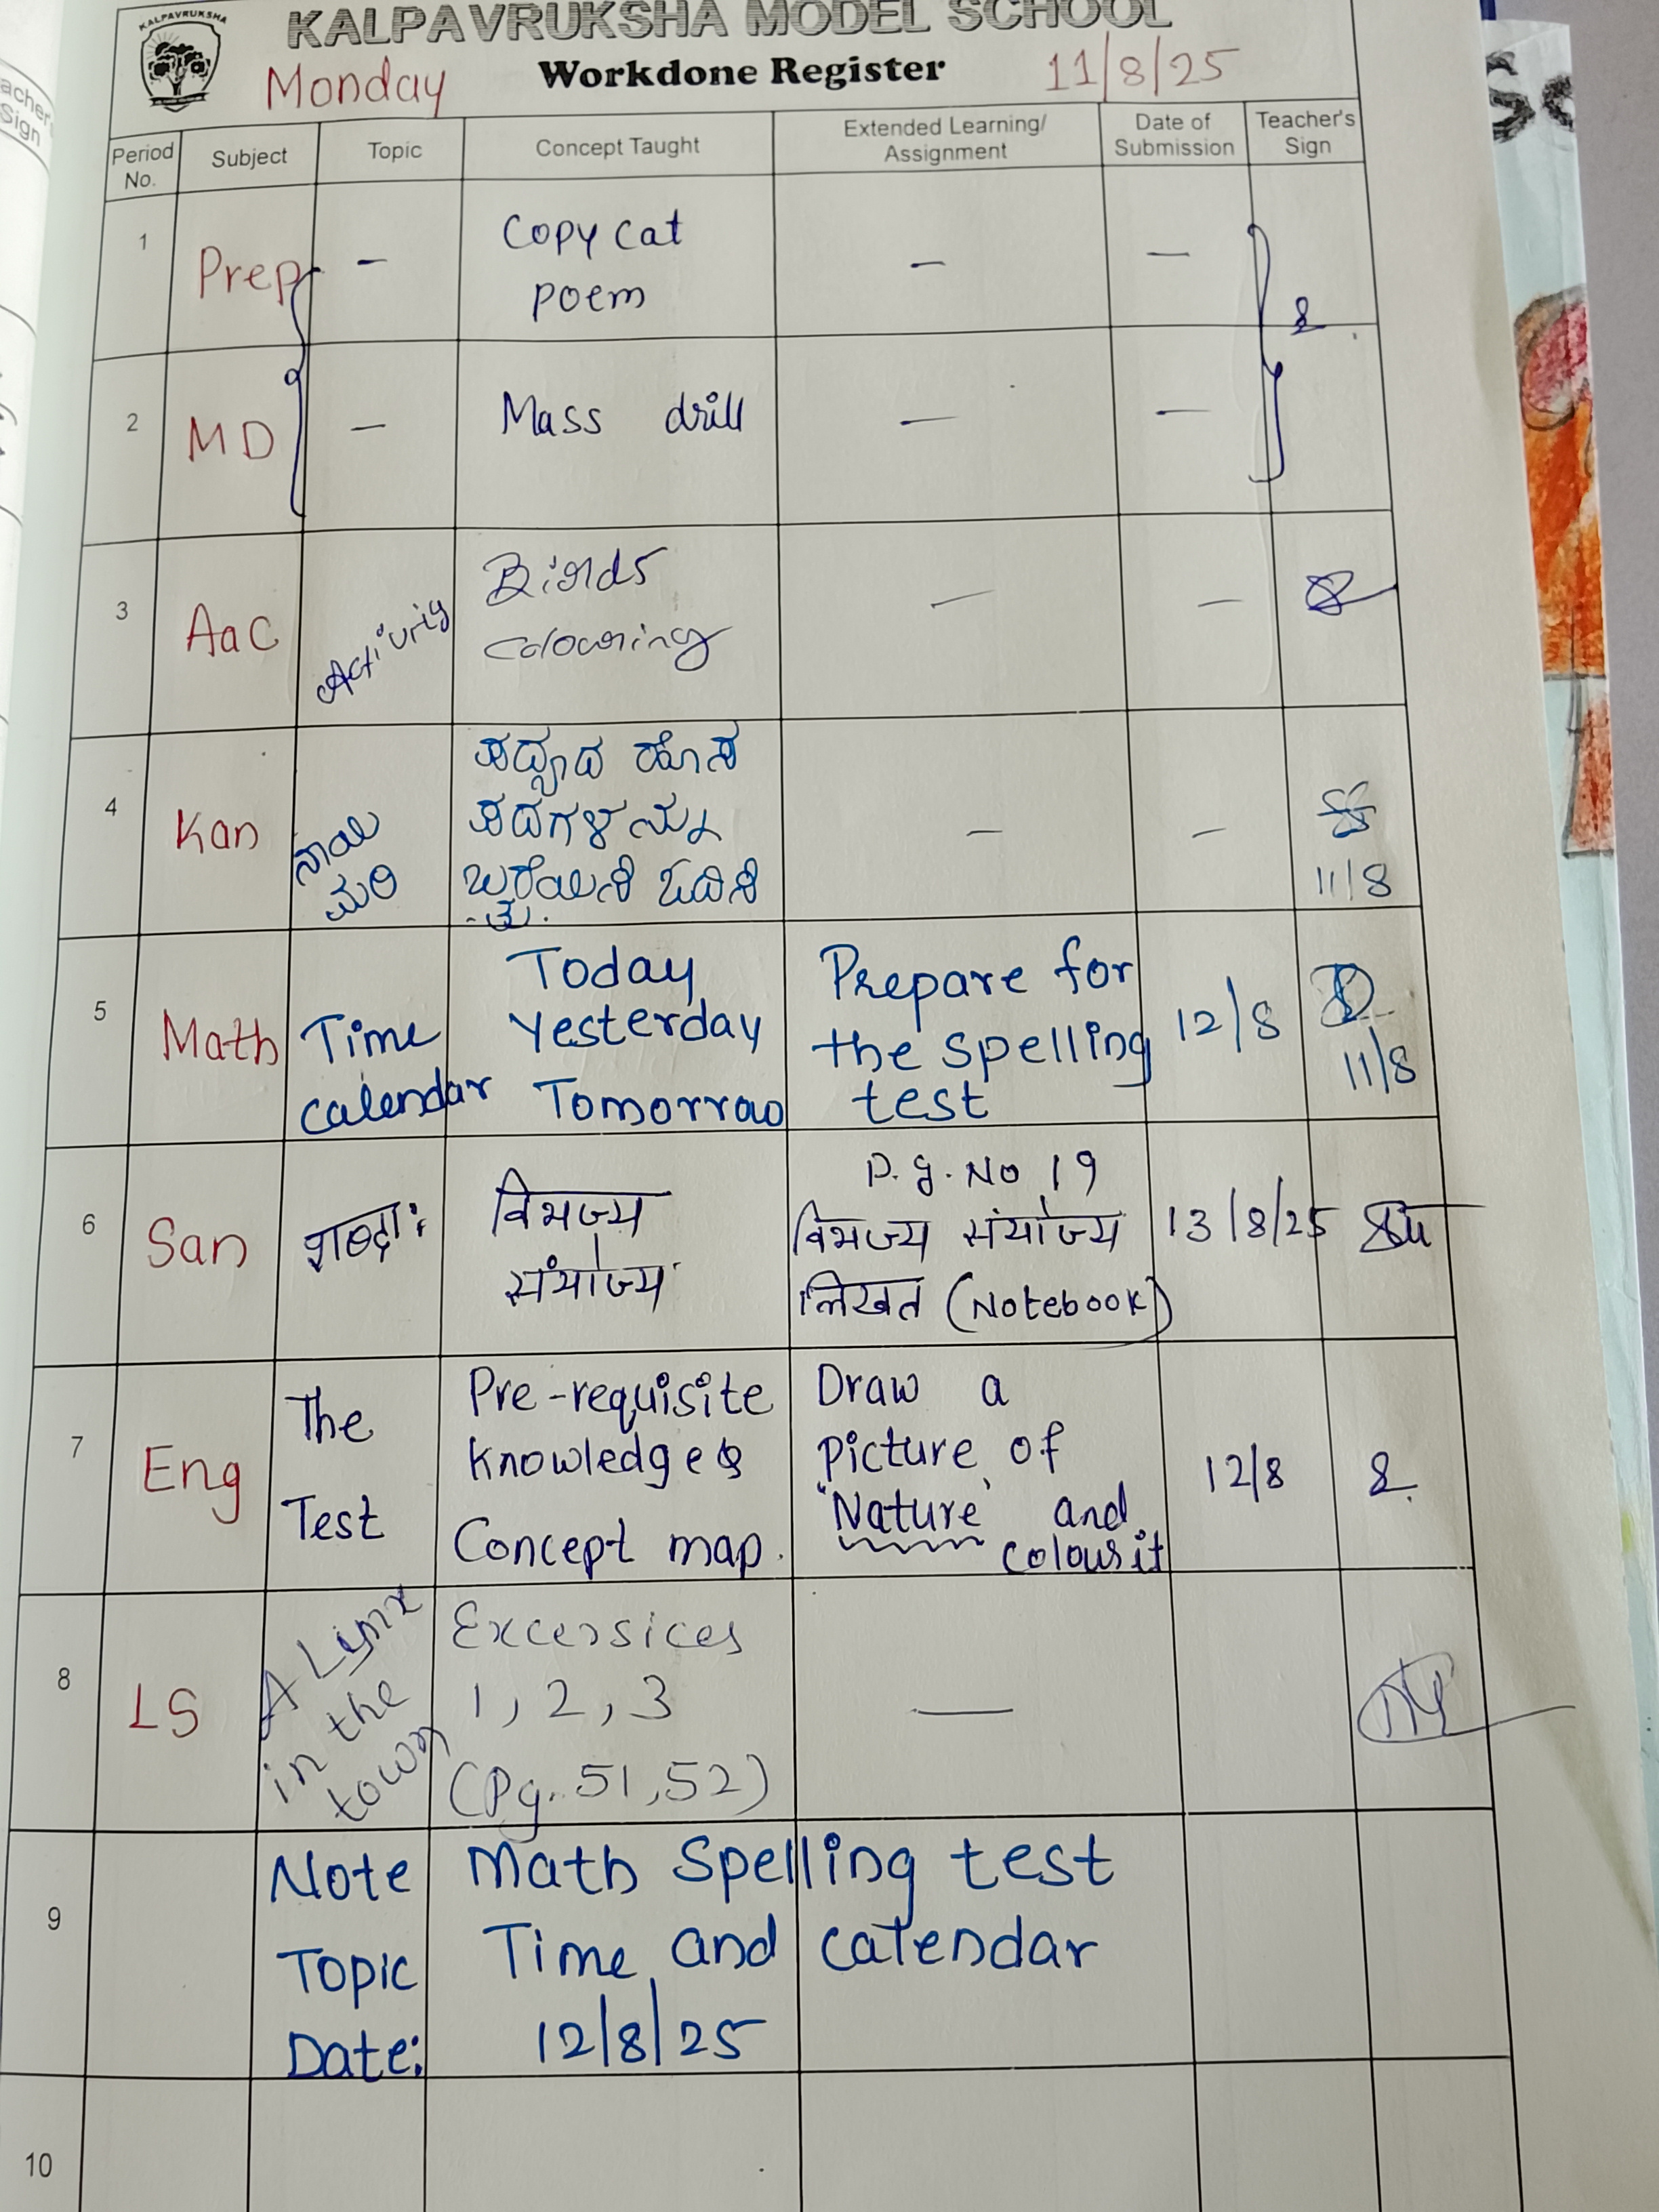 KALPAVRUKSHA
KALPAVRUKSHA MODEL SCHOOL
Monday Workdone Register 11/8/25
Period No. Subject Topic Concept Taught Extended Learning/ Assignment Date of Submission Teacher's Sign
1 Prep - Copy cat
poem - -
2 MD - Mass drill - -
3 AaC Activity Birds
colouring - -
4 Kan ನಾಯಿ
ಮರಿ
ಪದ್ಯದ ಹೊಸ
ಪದಗಳನ್ನು
ಬರೆಯಿಸಿ ಓದಿಸಿ
ತು. - - 11/8
5 Math Time
calendar
Today
Yesterday
Tomorrow
Prepare for
the spelling
test
12/8 11/8
6 San शब्दाः
विभज्य
संयोज्य
P.g. No 19
विभज्य संयोज्य
लिखत (Notebook)
13/8/25
7 Eng The
Test
Pre-requisite
knowledge &
Concept map.
Draw a
picture of
"Nature" and
colour it
12/8
8 LS A Lynx
in the
town
Excersices
1, 2, 3
(Pg. 51,52)
-
9 Note Math Spelling test
Topic Time and calendar
Date: 12/8/25
10
acher's
Sign